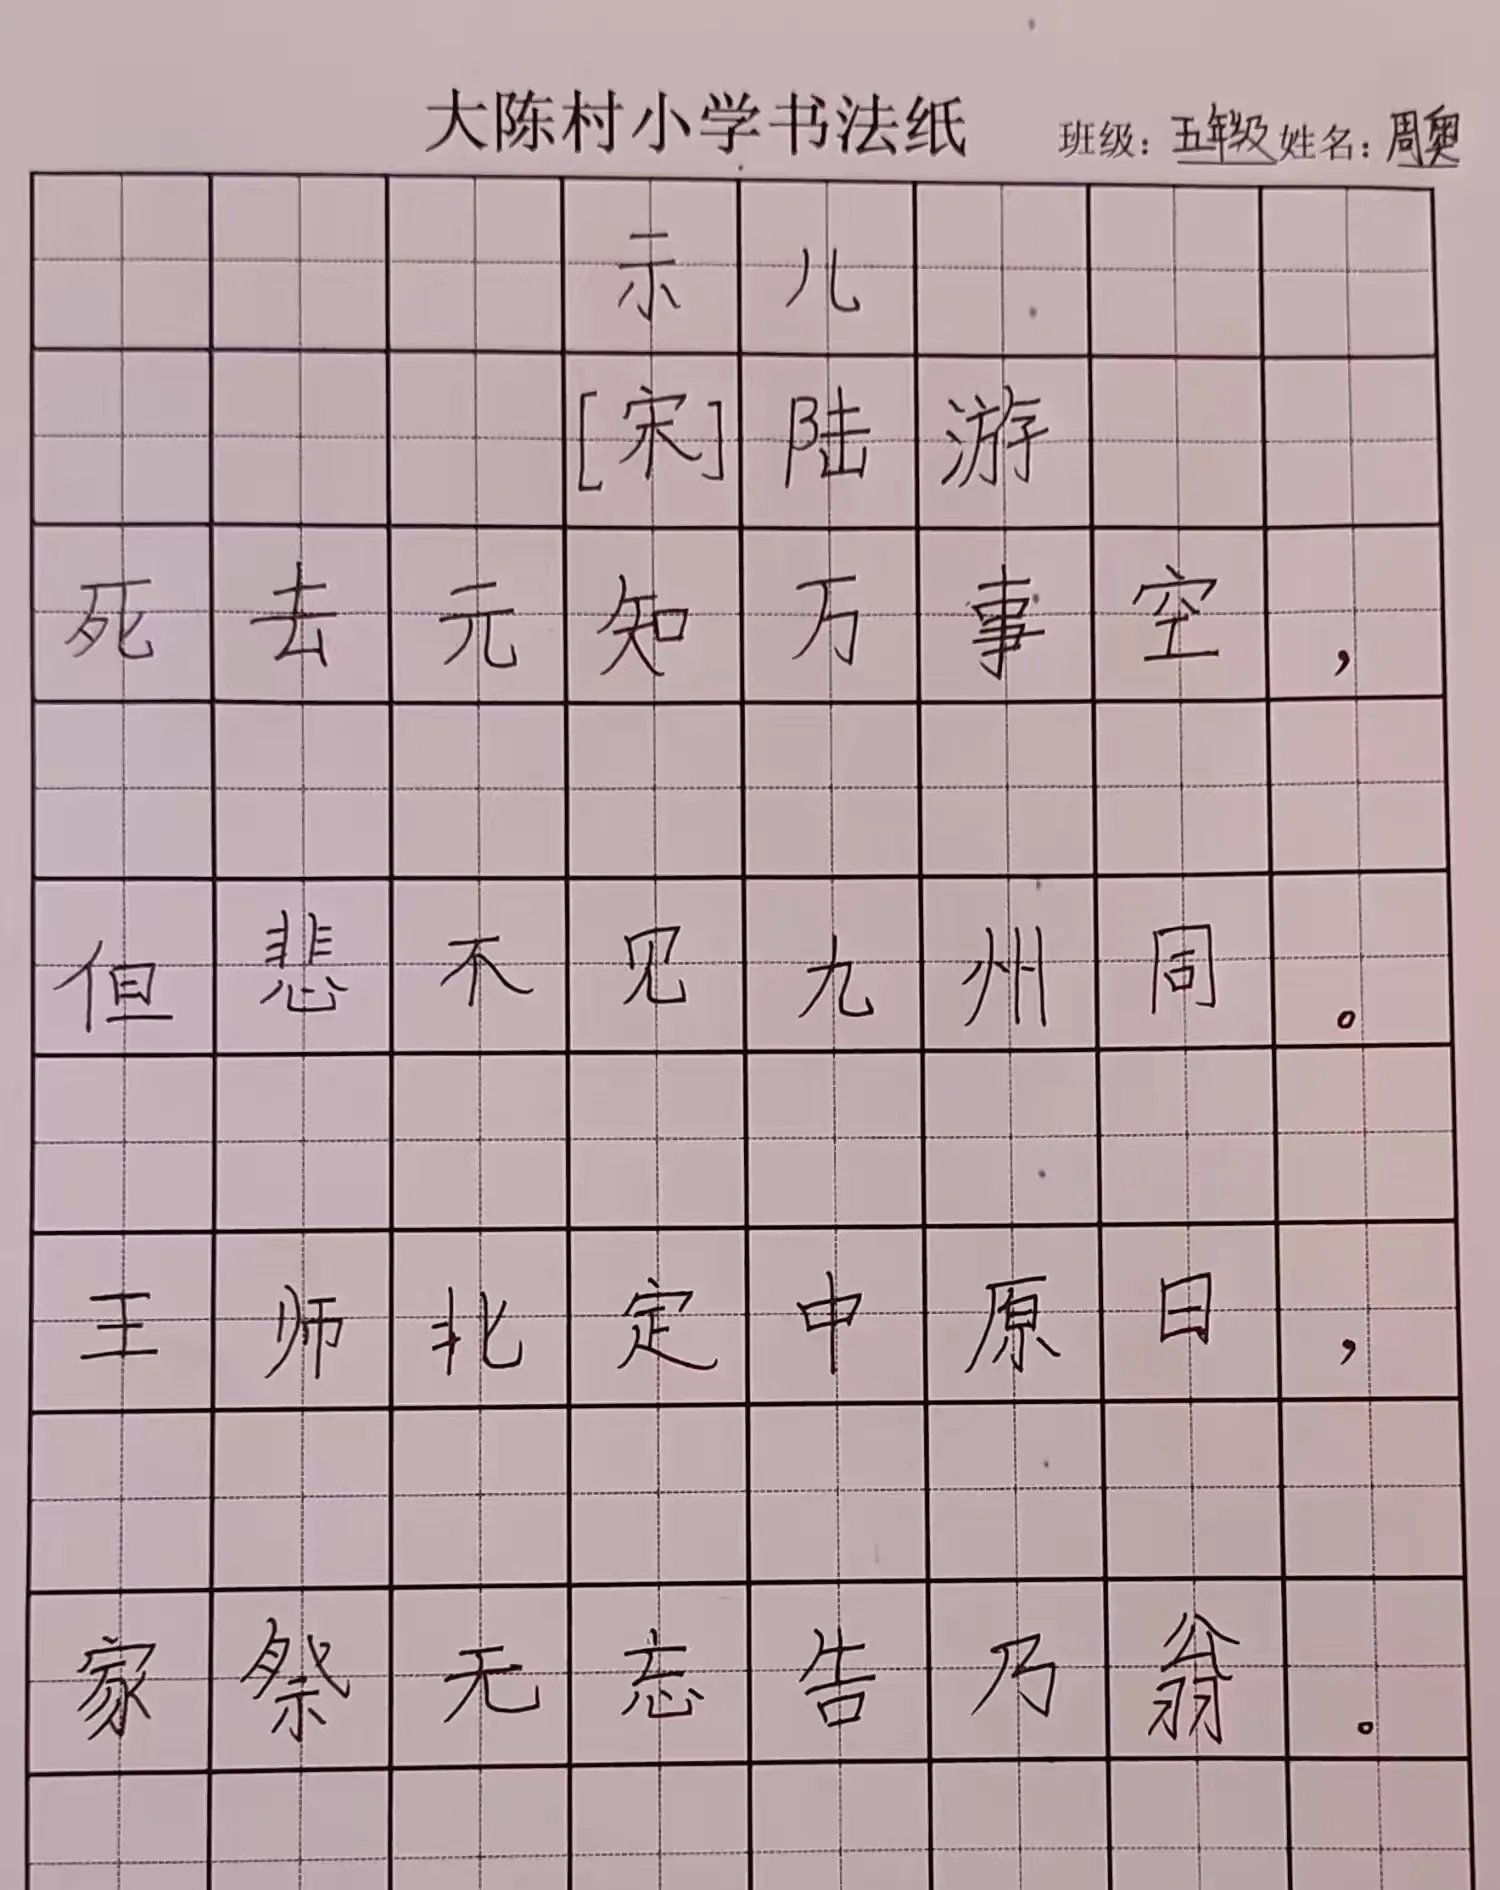 大陈村小学书法纸 班级：五年级 姓名：周奥
示儿
[宋]陆游
死去元知万事空，
但悲不见九州同。
王师北定中原日，
家祭无忘告乃翁。